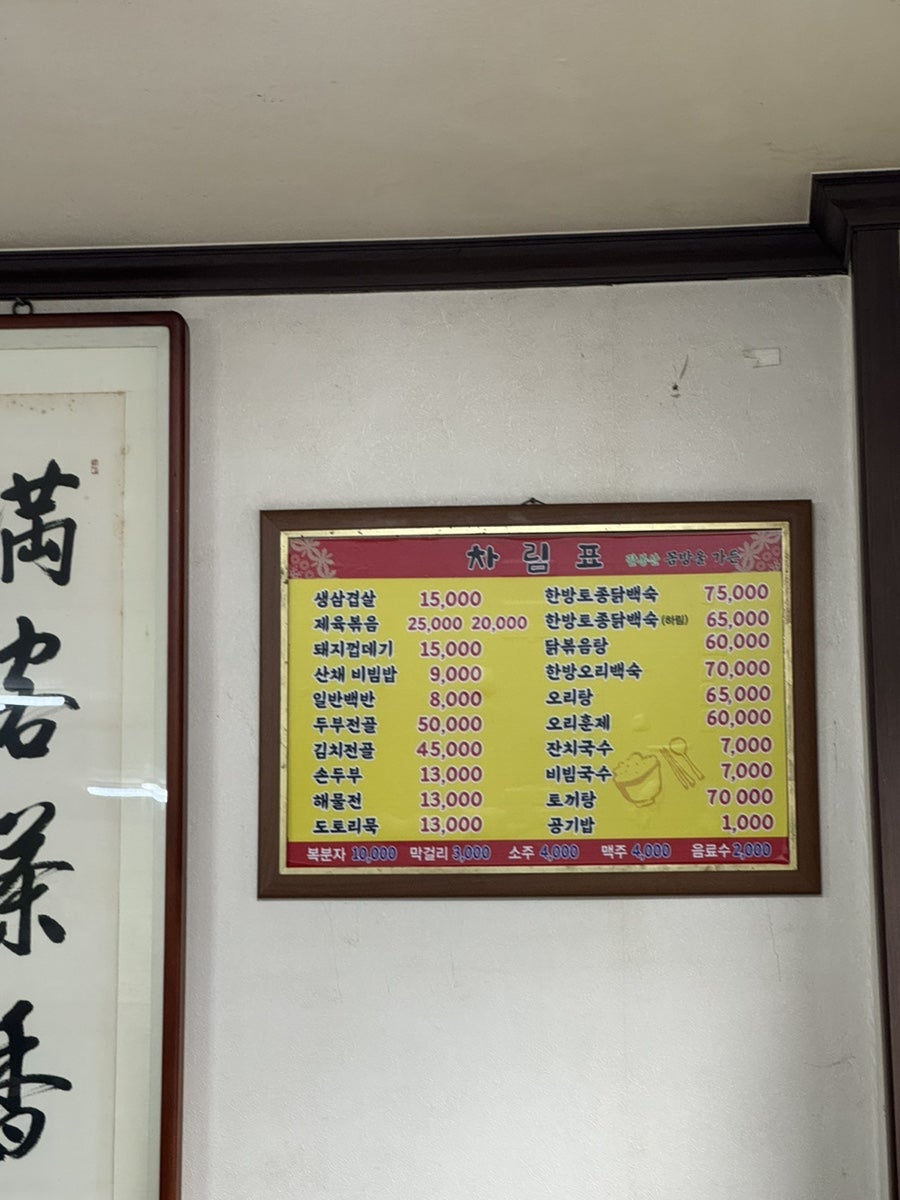 滿
客
茶
香
차림표
생삼겹살 15,000
제육볶음 25,000 20,000
돼지껍데기 15,000
산채 비빔밥 9,000
일반백반 8,000
두부전골 50,000
김치전골 45,000
손두부 13,000
해물전 13,000
도토리묵 13,000
한방토종닭백숙 75,000
한방토종닭백숙(하림) 65,000
닭볶음탕 60,000
한방오리백숙 70,000
오리탕 65,000
오리훈제 60,000
잔치국수 7,000
비빔국수 7,000
토끼탕 70 000
공기밥 1,000
복분자 10,000 막걸리 3,000 소주 4,000 맥주 4,000 음료수 2,000